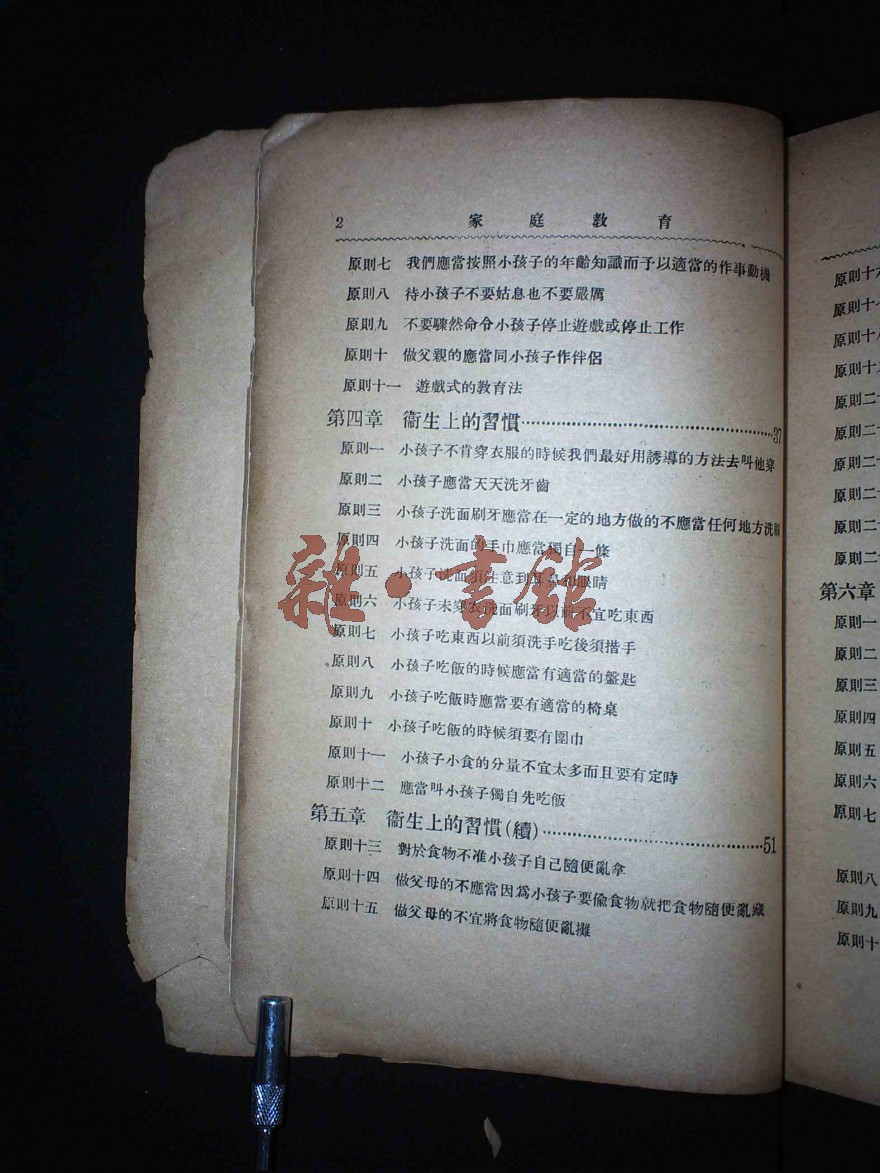 2 家庭教育
原則七 我們應當按照小孩子的年齡知識而予以適當的作事動機
原則八 待小孩子不要姑息也不要嚴厲
原則九 不要驟然命令小孩子停止遊戲或停止工作
原則十 做父親的應當同小孩子作伴侶
原則十一 遊戲式的教育法
第四章 衞生上的習慣 37
原則一 小孩子不肯穿衣服的時候我們最好用誘導的方法去叫他穿
原則二 小孩子應當天天洗牙齒
原則三 小孩子洗面刷牙應當在一定的地方做的不應當任何地方洗刷
原則四 小孩子洗面的手巾應當獨自一條
原則五 小孩子洗面須注意到耳鼻和眼睛
原則六 小孩子未穿衣洗面刷牙以前不宜吃東西
原則七 小孩子吃東西以前須洗手吃後須揩手
原則八 小孩子吃飯的時候應當有適當的盤匙
原則九 小孩子吃飯時應當要有適當的椅桌
原則十 小孩子吃飯的時候須要有圍巾
原則十一 小孩子小食的分量不宜太多而且要有定時
原則十二 應當叫小孩子獨自先吃飯
第五章 衞生上的習慣(續) 51
原則十三 對於食物不准小孩子自己隨便亂拿
原則十四 做父母的不應當因爲小孩子要偸食物就把食物隨便亂藏
原則十五 做父母的不宜將食物隨便亂攤
雜·書館
原則十
原則十
原則十
原則十
原則二
原則二
原則二
原則二
原則二
原則二
第六章
原則一
原則二
原則三
原則四
原則五
原則六
原則七
原則八
原則九
原則十